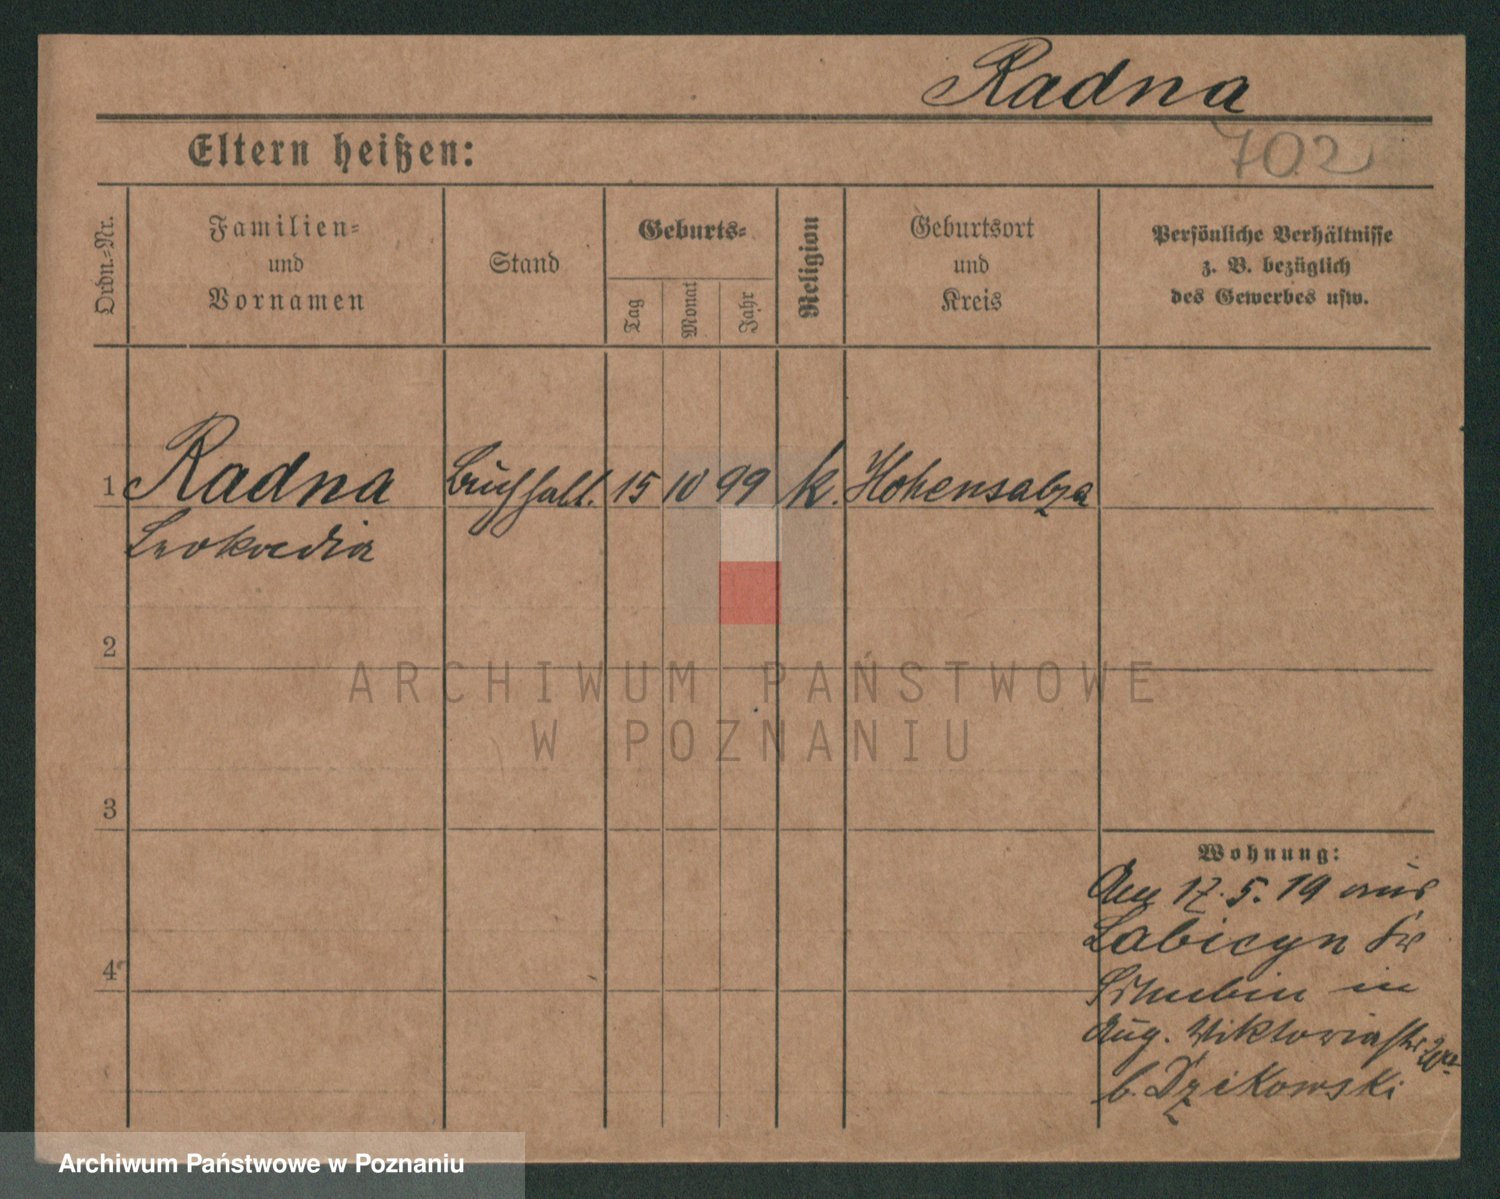 Radna
702
Eltern heißen:
Ordn.-Nr.
Familien-
und
Vornamen
Stand
Geburts-
Tag
Monat
Jahr
Religion
Geburtsort
und
Kreis
Persönliche Verhältnisse
z. B. bezüglich
des Gewerbes usw.
1 Radna Buchhalt. 15 10 99 k. Hohensalza
Leokadia
2
3
4
Wohnung:
Am 17.5.19 aus
Labiczyn Kr
Schubin in
Aug. Viktoriastr
b. Dzikowski
ARCHIWUM PAŃSTWOWE
W POZNANIU
Archiwum Państwowe w Poznaniu